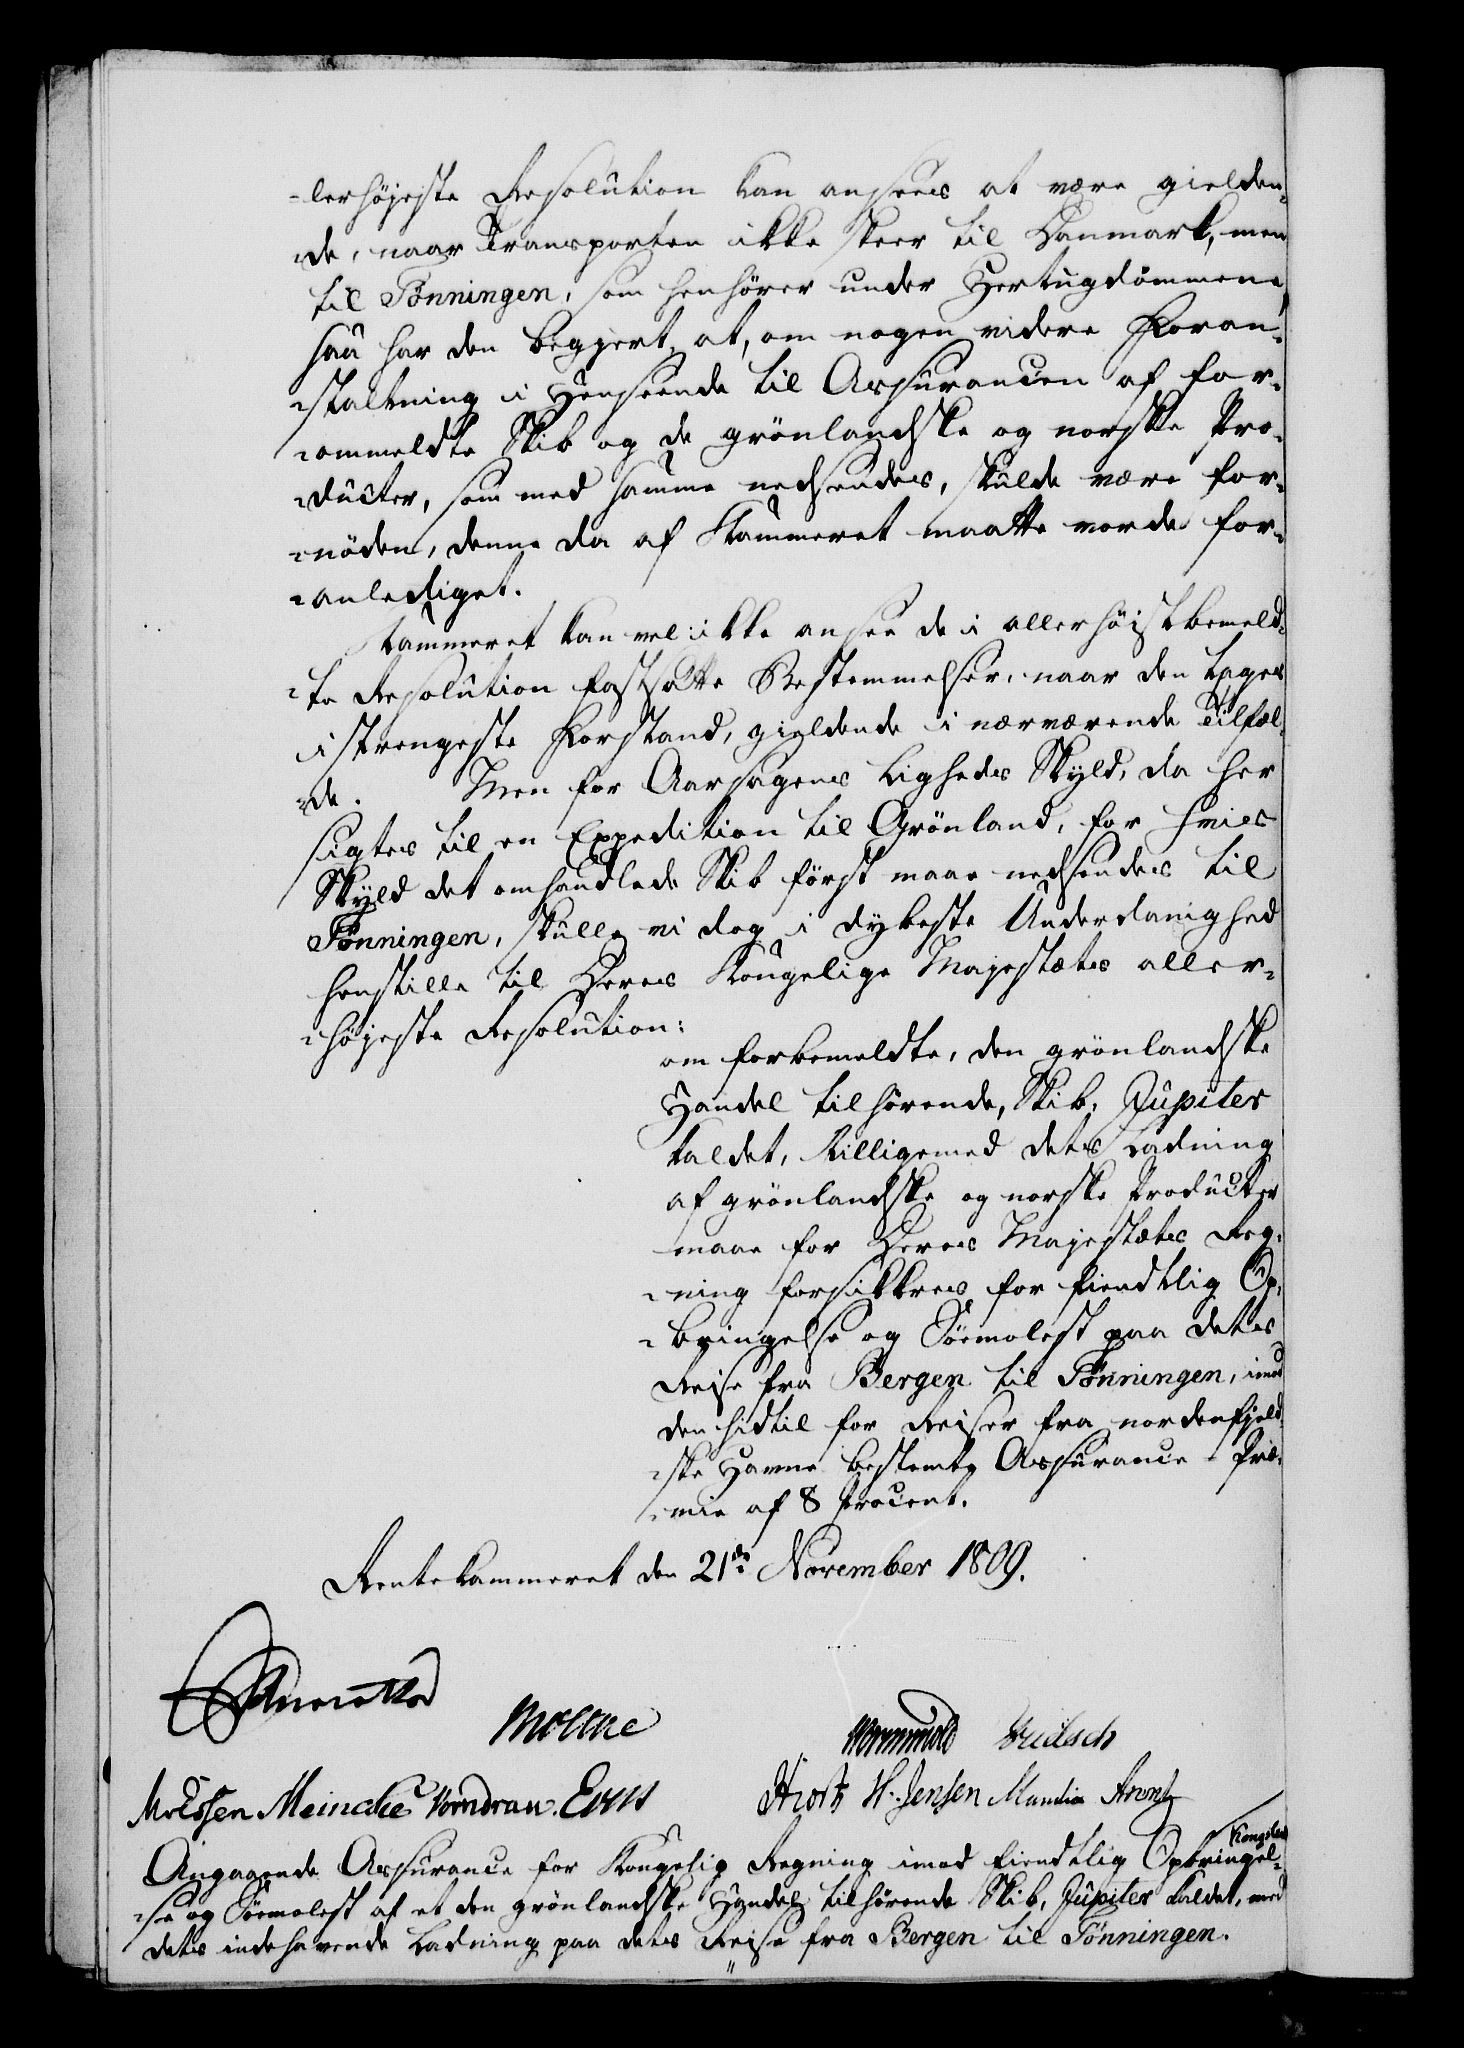 -lerhöjeste Resolution kan ansees at være gielden-
-de, naar Transporten ikke skeer til Danmark, men
til Tönningen, som henhörer under Hertugdömmene,
saa har den begjert, at, om nogen videre Foran-
-staltning i Henseende til Assurancen af for-
-ommeldte Skib og de grönlandske og norske Pro-
-ducter, som med samme nedsendes, skulde være for-
-nöden, denne da af Kammeret maatte vorde for-
-anlediget.
Kammeret kan vel ikke ansee de i allerhöistbemeld-
-te Resolution fastsatte Bestemmelser, naar den tages
i strengeste Forstand, gieldende i nærværende Tilfæl-
-de. Men for Aarsagens Ligheds Skyld, da her
sigtes til en Expedition til Grönland, for hvis
Skyld det omhandlede Skib först maae nedsendes til
Tönningen, skulle vi dog i dybeste Underdanighed
henstille til Deres Kongelige Majestæts aller-
-höjeste Resolution:
om forbemeldte, den grönlandske
Handel tilhörende, Skib, Jupiter
kaldet, tilligemed dets Ladning
af grönlandske og norske Producter
maae for Deres Majestæts Reg-
-ning forsikkres for fiendtlig Op-
-bringelse og Söemolest paa dets
Reise fra Bergen til Tönningen, imod
den hidtil for Reiser fra nordenfjeld-
-ske Havne bestemte Assurance-Præ-
-mie af 8 Procent.
Rentekammeret den 21de November 1809.
Moltke
Wormskiold
Meincke Vorndran. Hiort W. Jensen
Angaaende Assurance for Kongelig Regning imod fiendtlig Opbringel-
-se og Söemolest af et den grönlandske Handel tilhörende Skib, Jupiter kaldet, med
dets indehavende Ladning paa dets Reise fra Bergen til Tönningen.